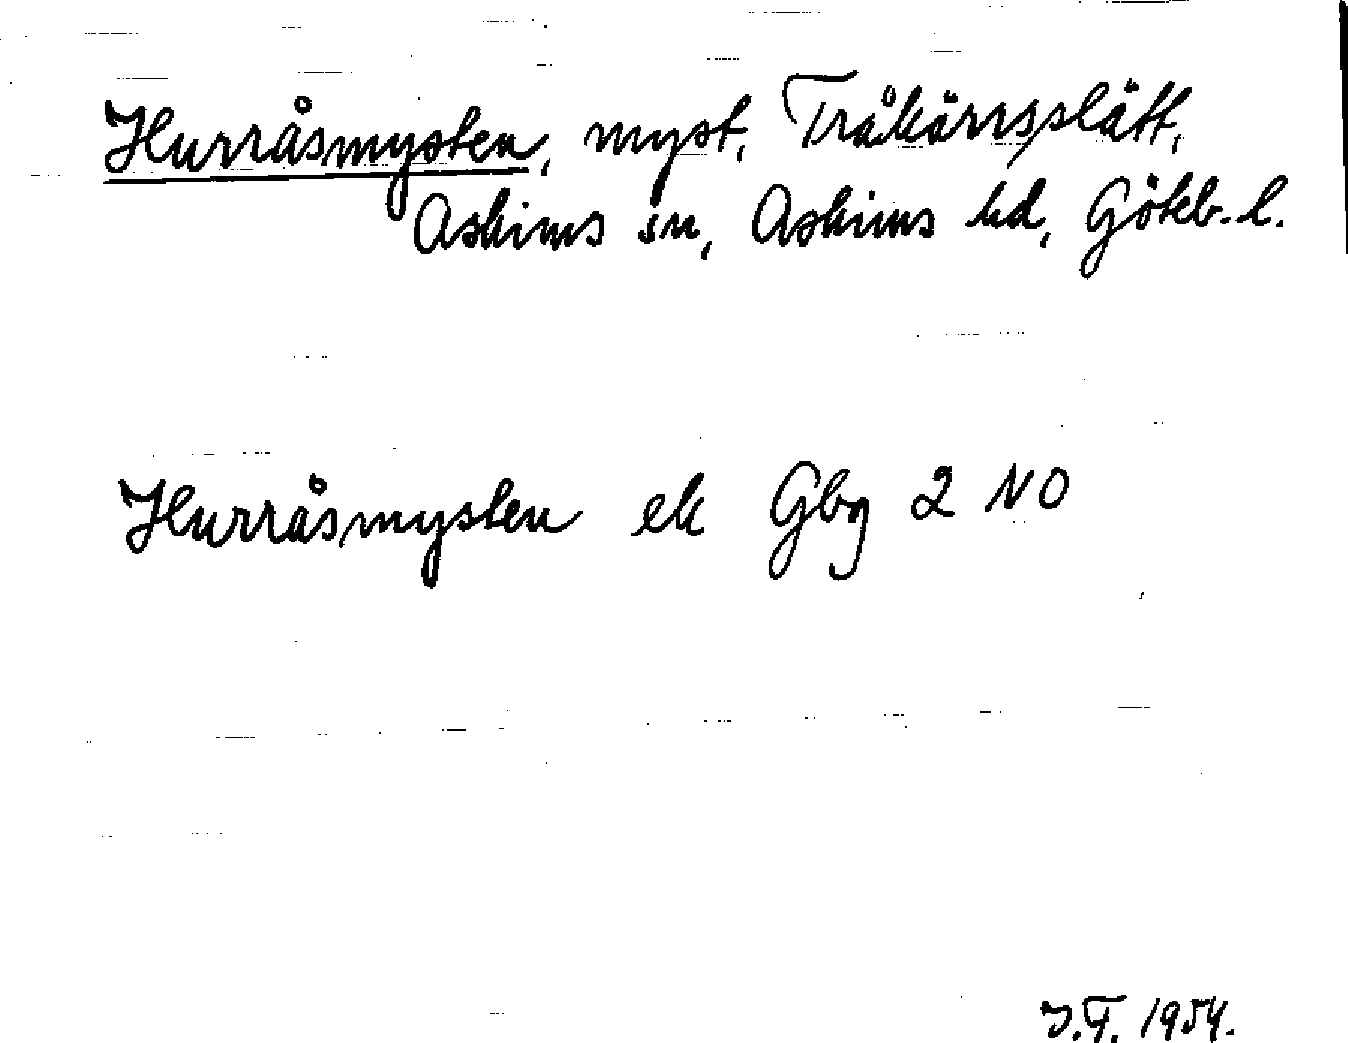 Hurråsmysten, myst, Tråkärrsslätt,
Askims sn, Askims hd, Götebr. l.
Hurråsmysten ek Gbg 2 NO
J.T. 1954.